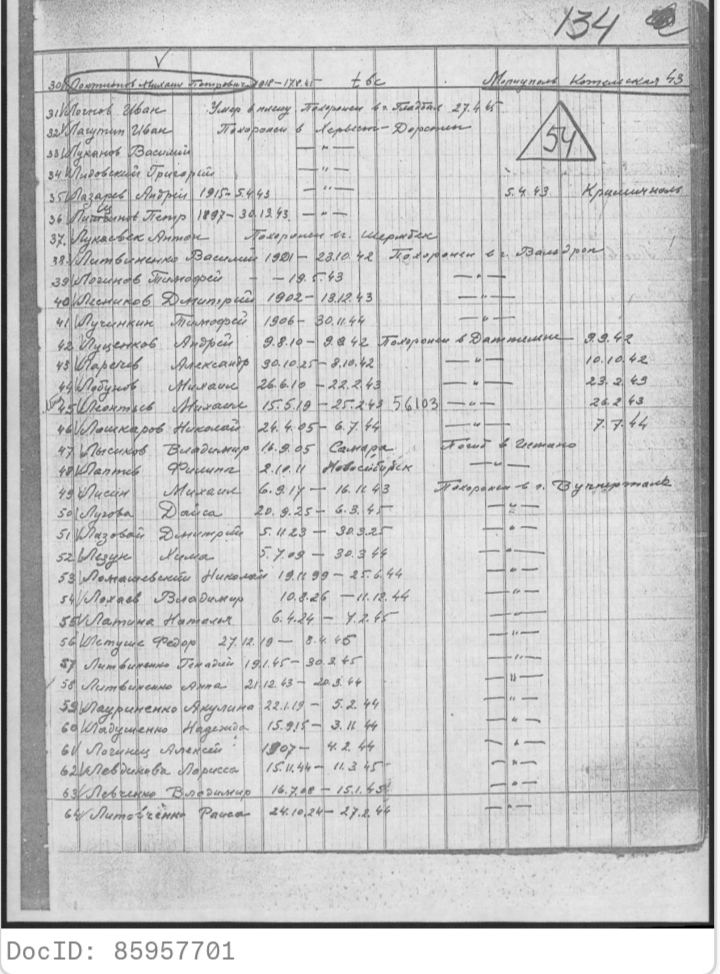 134
30. Михаил Петрович 1918-17.8.45 tbc Мариуполь Котельская 43
31 Логнов Иван Умер в плену Похоронен в г. 27.4.45
32 Лагутин Иван Похоронен в Дорстен
54
33 Луканов Василий — " —
34 Лидовский Григорий — " —
35 Лазарев Андрей 1915-5.4.43 — " — 5.4.43
36. Петр 1897-30.12.43 — " —
37. Антон Похоронен в г. Шермбек
38. Литвиненко Василий 1921-23.10.42 Похоронен в г. Вальдроп
39 Логинов Тимофей - -19.5.43 — " —
40 Лесников Дмитрий 1902-13.12.43 — " —
41 Лучинкин Тимофей 1906-30.11.44 — " —
42 Луценков Андрей 9.8.10-9.9.42 Похоронен в 9.9.42
43 Ларечев Александр 30.10.25-8.10.42 — " — 10.10.42
44 Лобунов Михаил 26.6.10-22.2.43 — " — 23.2.43
45 Леонтьев Михаил 15.5.19-25.2.43 56103 — " — 26.2.43
46 Лошкаров Николай 24.4.05-6.7.44 — " — 7.7.44
47 Лысиков Владимир 16.9.05 Самара Погиб в Гестапо
48 Лаптев Филипп 2.10.11 Новосибирск — " —
49 Лисин Михаил 6.9.17-16.11.43 Похоронен в г. Вуппертале
50 Лугова Даиса 20.9.25-6.3.45 — " —
51 Лазовой Дмитрий 5.11.23-30.3.25 — " —
52 Лезун Хима 5.7.09-30.3.44 — " —
53 Ломашевский Николай 19.11.99-25.6.44 — " —
54 Лохаев Владимир 10.8.26-11.12.44 — " —
55 Латина Наталья 6.4.24-7.2.45 — " —
56 Федор 27.12.19-8.4.45 — " —
57 Литвиненко Генадий 19.1.45-30.3.45 — " —
58 Литвиненко Анна 21.12.43-20.3.44 — " —
59 Лауриненко Акулина 22.1.19-5.2.44 — " —
60 Ладушенко Надежда 15.9.15-3.11.44 — " —
61 Логинец Алексей 1907-4.2.44 — " —
62 Левдикова Лорисса 15.11.44-11.3.45 — " —
63 Левченко Владимир 16.7.08-15.1.45 — " —
64 Литовченко Раиса 24.10.24-27.2.44 — " —
DocID: 85957701